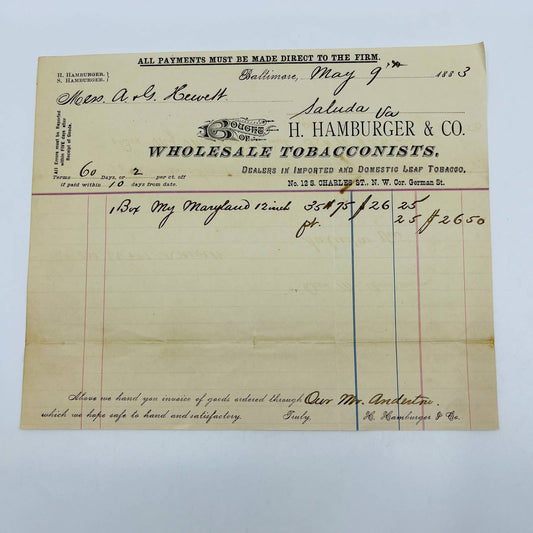 ALL PAYMENTS MUST BE MADE DIRECT TO THE FIRM.
H. HAMBURGER.
S. HAMBURGER.
Baltimore, May 9th 1883
Mess. A & G. Hewett
Saluda Va
All Errors must be Reported within FIVE days after Receipt of Goods.
BOUGHT OF H. HAMBURGER & CO.
WHOLESALE TOBACCONISTS,
DEALERS IN IMPORTED AND DOMESTIC LEAF TOBACCO,
Terms 60 Days, or 2 per ct. off
if paid within 10 days from date.
No. 12 S. CHARLES ST., N. W. Cor. German St.
1 Box My Maryland 12 inch 35 # 75 26 25
25 26 50
Above we hand you invoice of goods ordered through Our Mr. Anderton
which we hope safe to hand and satisfactory. Truly, H. Hamburger & Co.